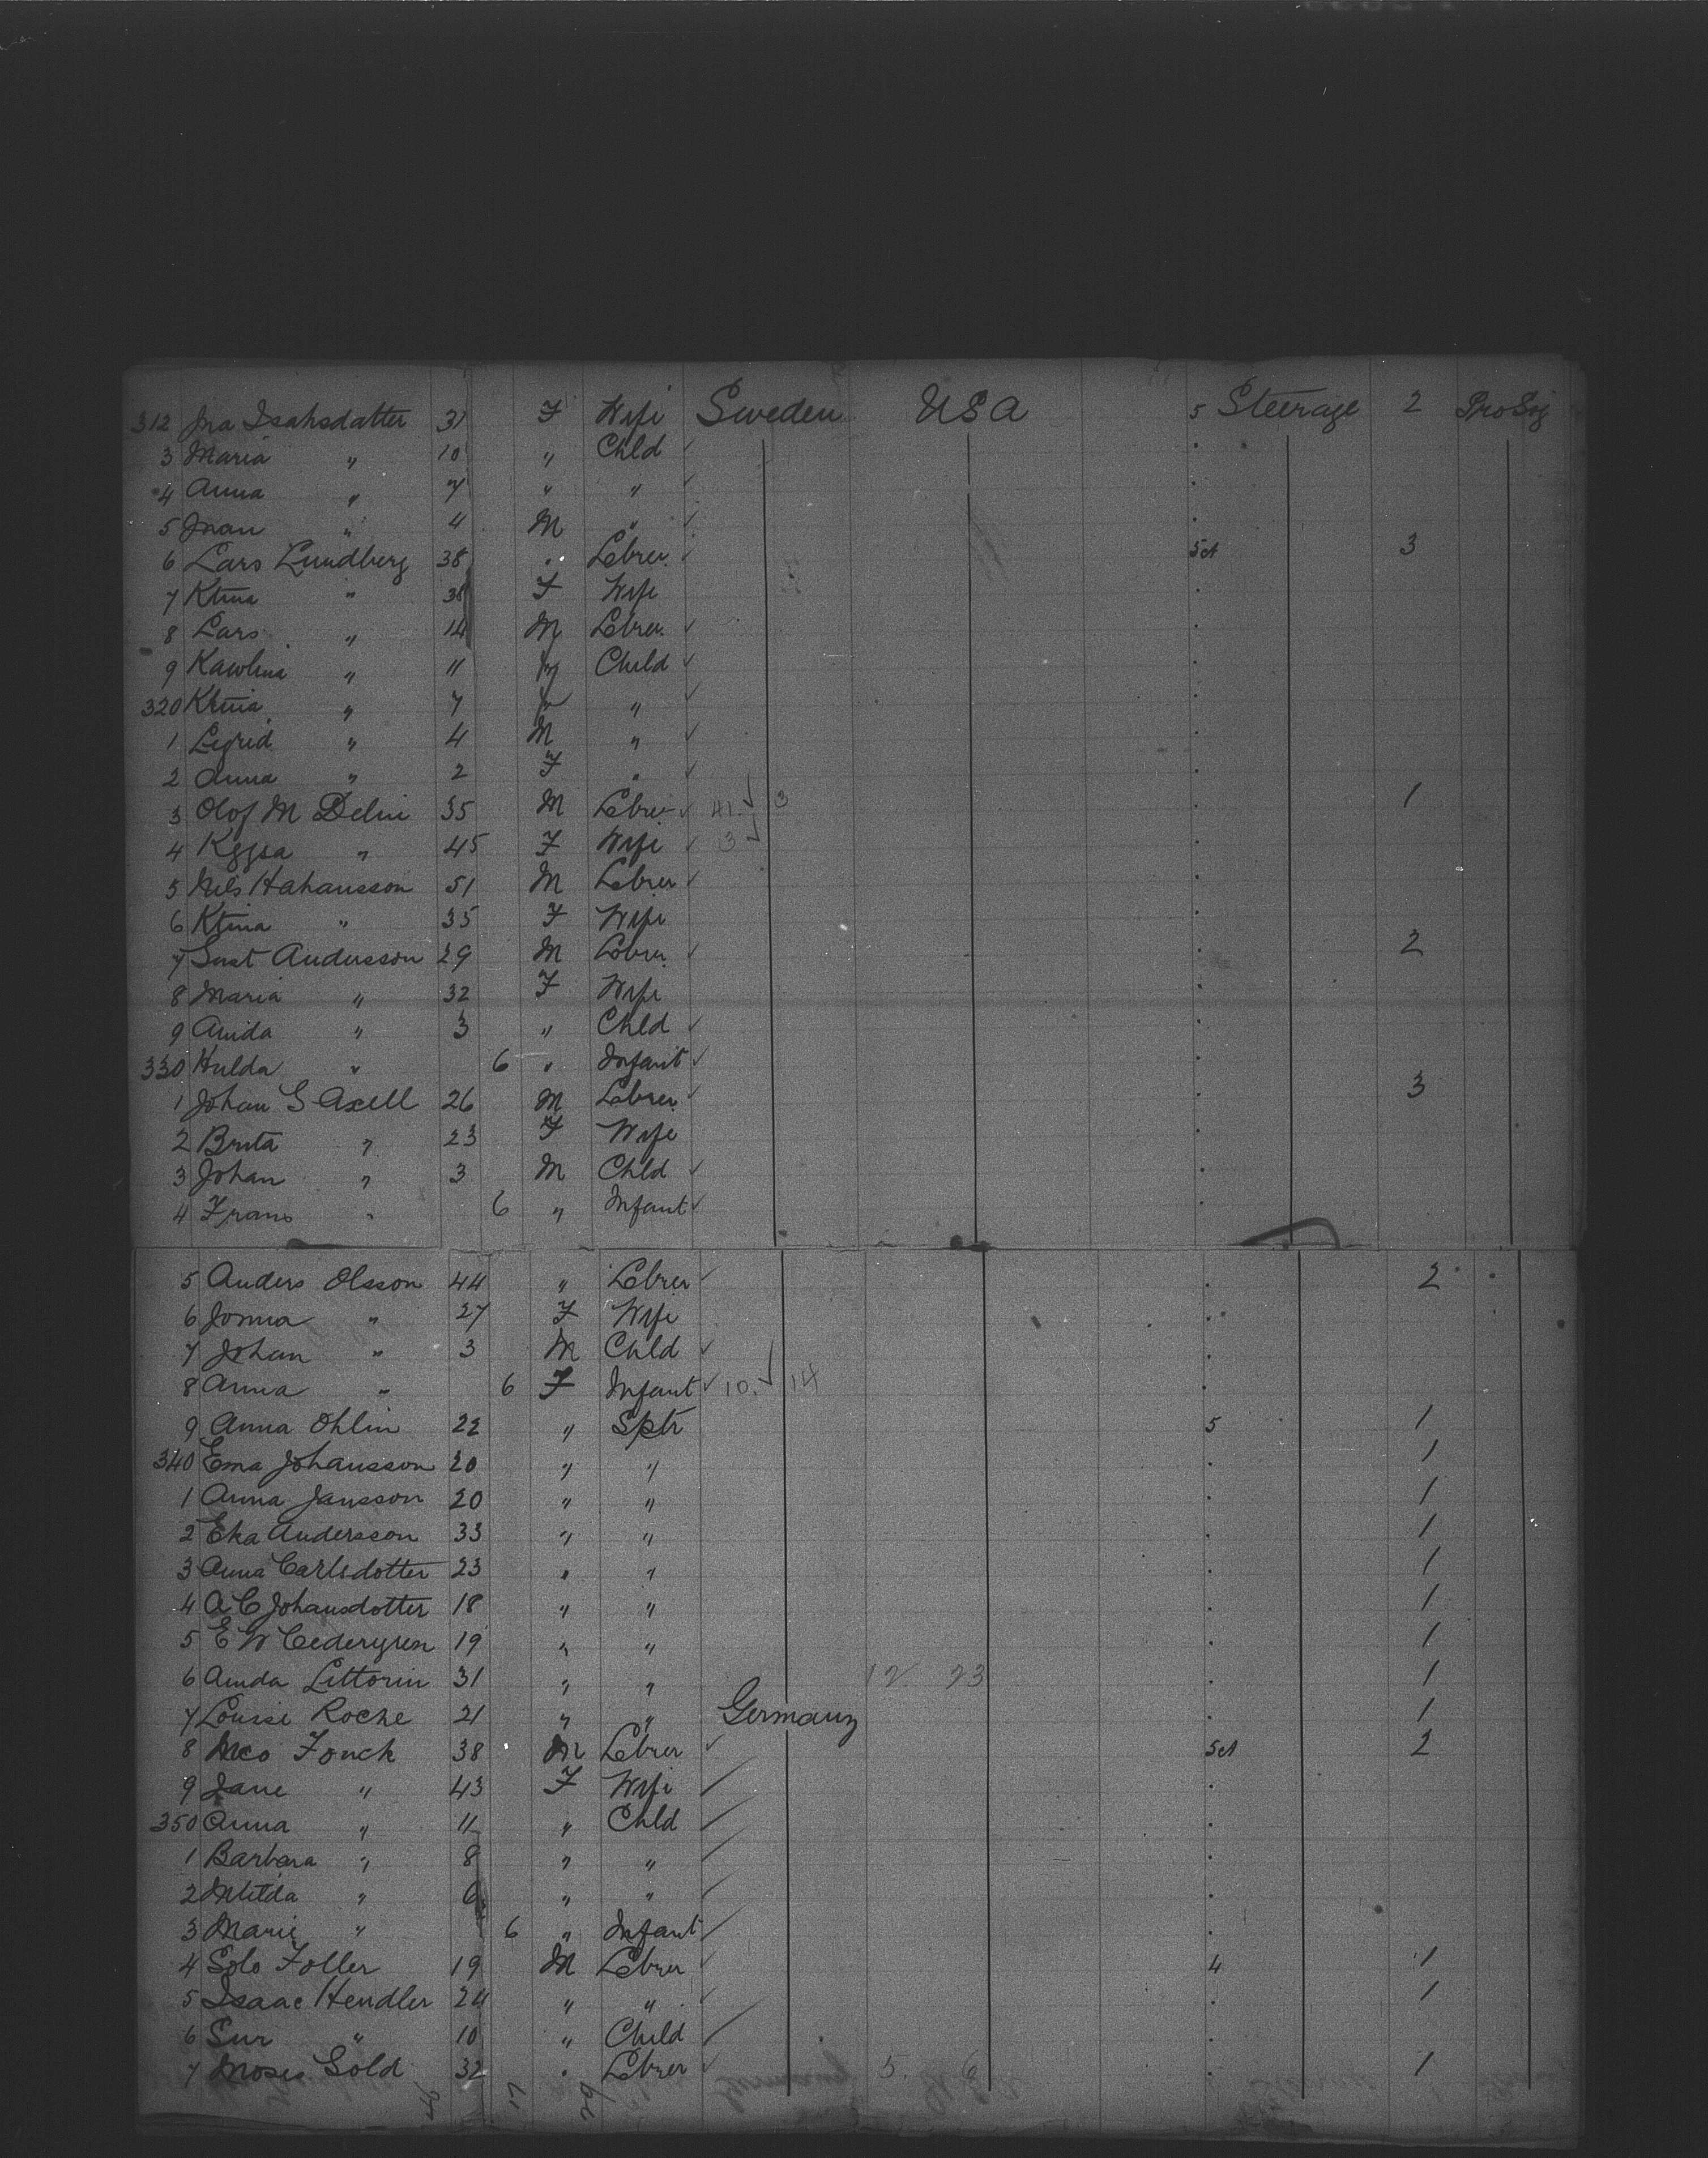 312 Jna Isahsdatter 31 F Wife Sweden USA 5 Steerage 2 ProSog
3 Maria " 10 " Chld
4 Anna " 7 " "
5 Jnan " 4 M "
6 Lars Lundberg 38 " Lebrer 5A 3
7 Ktina " 38 F Wife
8 Lars " 14 M Lebrer
9 Kawlina " 11 Child
320 Ktina " 7 "
1 Legrid " 4 M "
2 Anna " 2 F "
3 Olof M Delin 35 M Lebrer 41 3 1
4 Kajsa " 45 F Wife 3
5 Nels Hahansson 51 M Lebrer
6 Ktina " 35 F Wife
7 Gust Andersson 29 M Lobrer 2
8 Maria " 32 F Wife
9 Anida " 3 " Chld
330 Hulda " 6 " Infant
1 Johan G Axell 26 M Lebrer 3
2 Brita " 23 F Wife
3 Johan " 3 M Chld
4 Frans " 6 " Infant
5 Anders Olsson 44 " Lebrer 2
6 Jonna " 27 F Wife
7 Johan " 3 M Chld
8 Anna " 6 F Infant 10 14
9 Anna Ohlin 22 " Sptr 5 1
340 Ema Johansson 20 " " 1
1 Anna Jansson 20 " " 1
2 Eka Andersson 33 " " 1
3 Anna Carlsdotter 23 " " 1
4 A C Johansdotter 18 " " 1
5 E W Cedergren 19 " " 1
6 Amda Littorin 31 " " 12 23 1
7 Louise Roche 21 " " Germany 1
8 Nico Fonck 38 M Lebrer 5A 2
9 Jane " 43 F Wife
350 Anna " 11 " Chld
1 Barbara " 8 " "
2 Mtilda " 6 " "
3 Marie " 6 " Infant
4 Solo Foller 19 M Lebrer 4 1
5 Isaac Hendler 24 " " 1
6 Sur " 10 " Child
7 Moses Gold 32 " Lebrer 5. 6 1